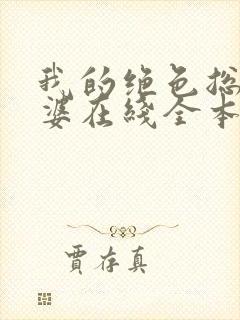 我的绝色总
婆在线全本
賈存真